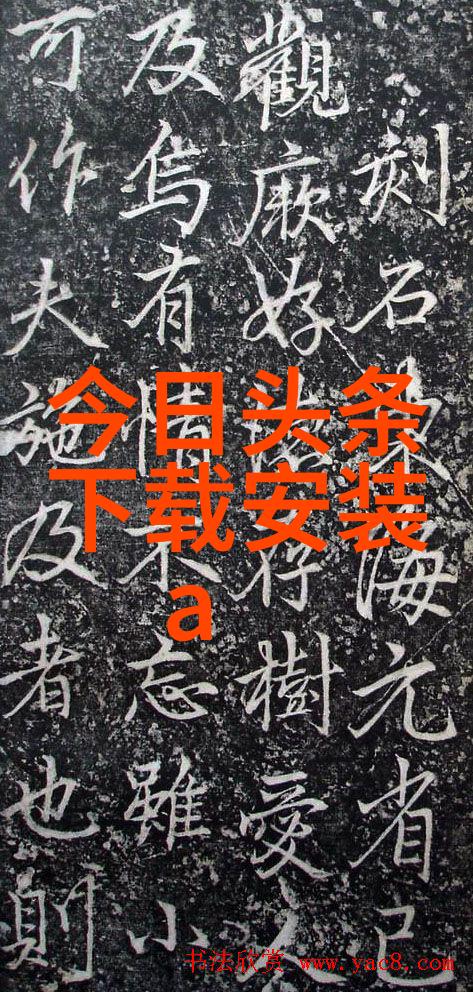 刻石海元省已
觀厥好存樹愛
及焉有情不忘雖小
可作夫施及者也則
今日头条
下载安装
a
书法欣赏 www.yac8.com